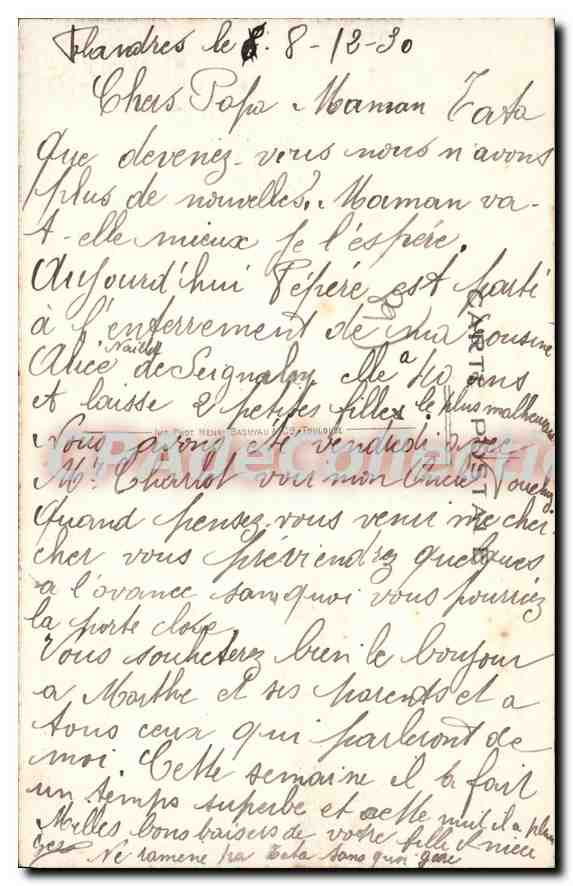 Flandres le 8. 8-12-30
Chers Papa Maman Tata
Que devenez-vous nous n'avons
plus de nouvelles? Maman va-
t-elle mieux je l'éspére.
Aujourd'hui Pépére est parti
à l'enterrement de ma cousine
Alice de elle a 40 ans
et laisse 2 petites filles le plus malheureux
Nous avons été vendredi avec
Mr Charlot voir mon Oncle
Quand pensez-vous venir me cher-
cher vous préviendrez quelques
a l'avance sans quoi vous pourriez
la porte close
Vous souhaiterez bien le bonjour
a Marthe et ses parents et a
tous ceux qui parleront de
moi. Cette semaine il a fait
un temps superbe et cette nuit il a plu
Milles bons baisers de votre fille et niece
Ne ramene pa Tata sans quoi gare
CARTE POSTALE